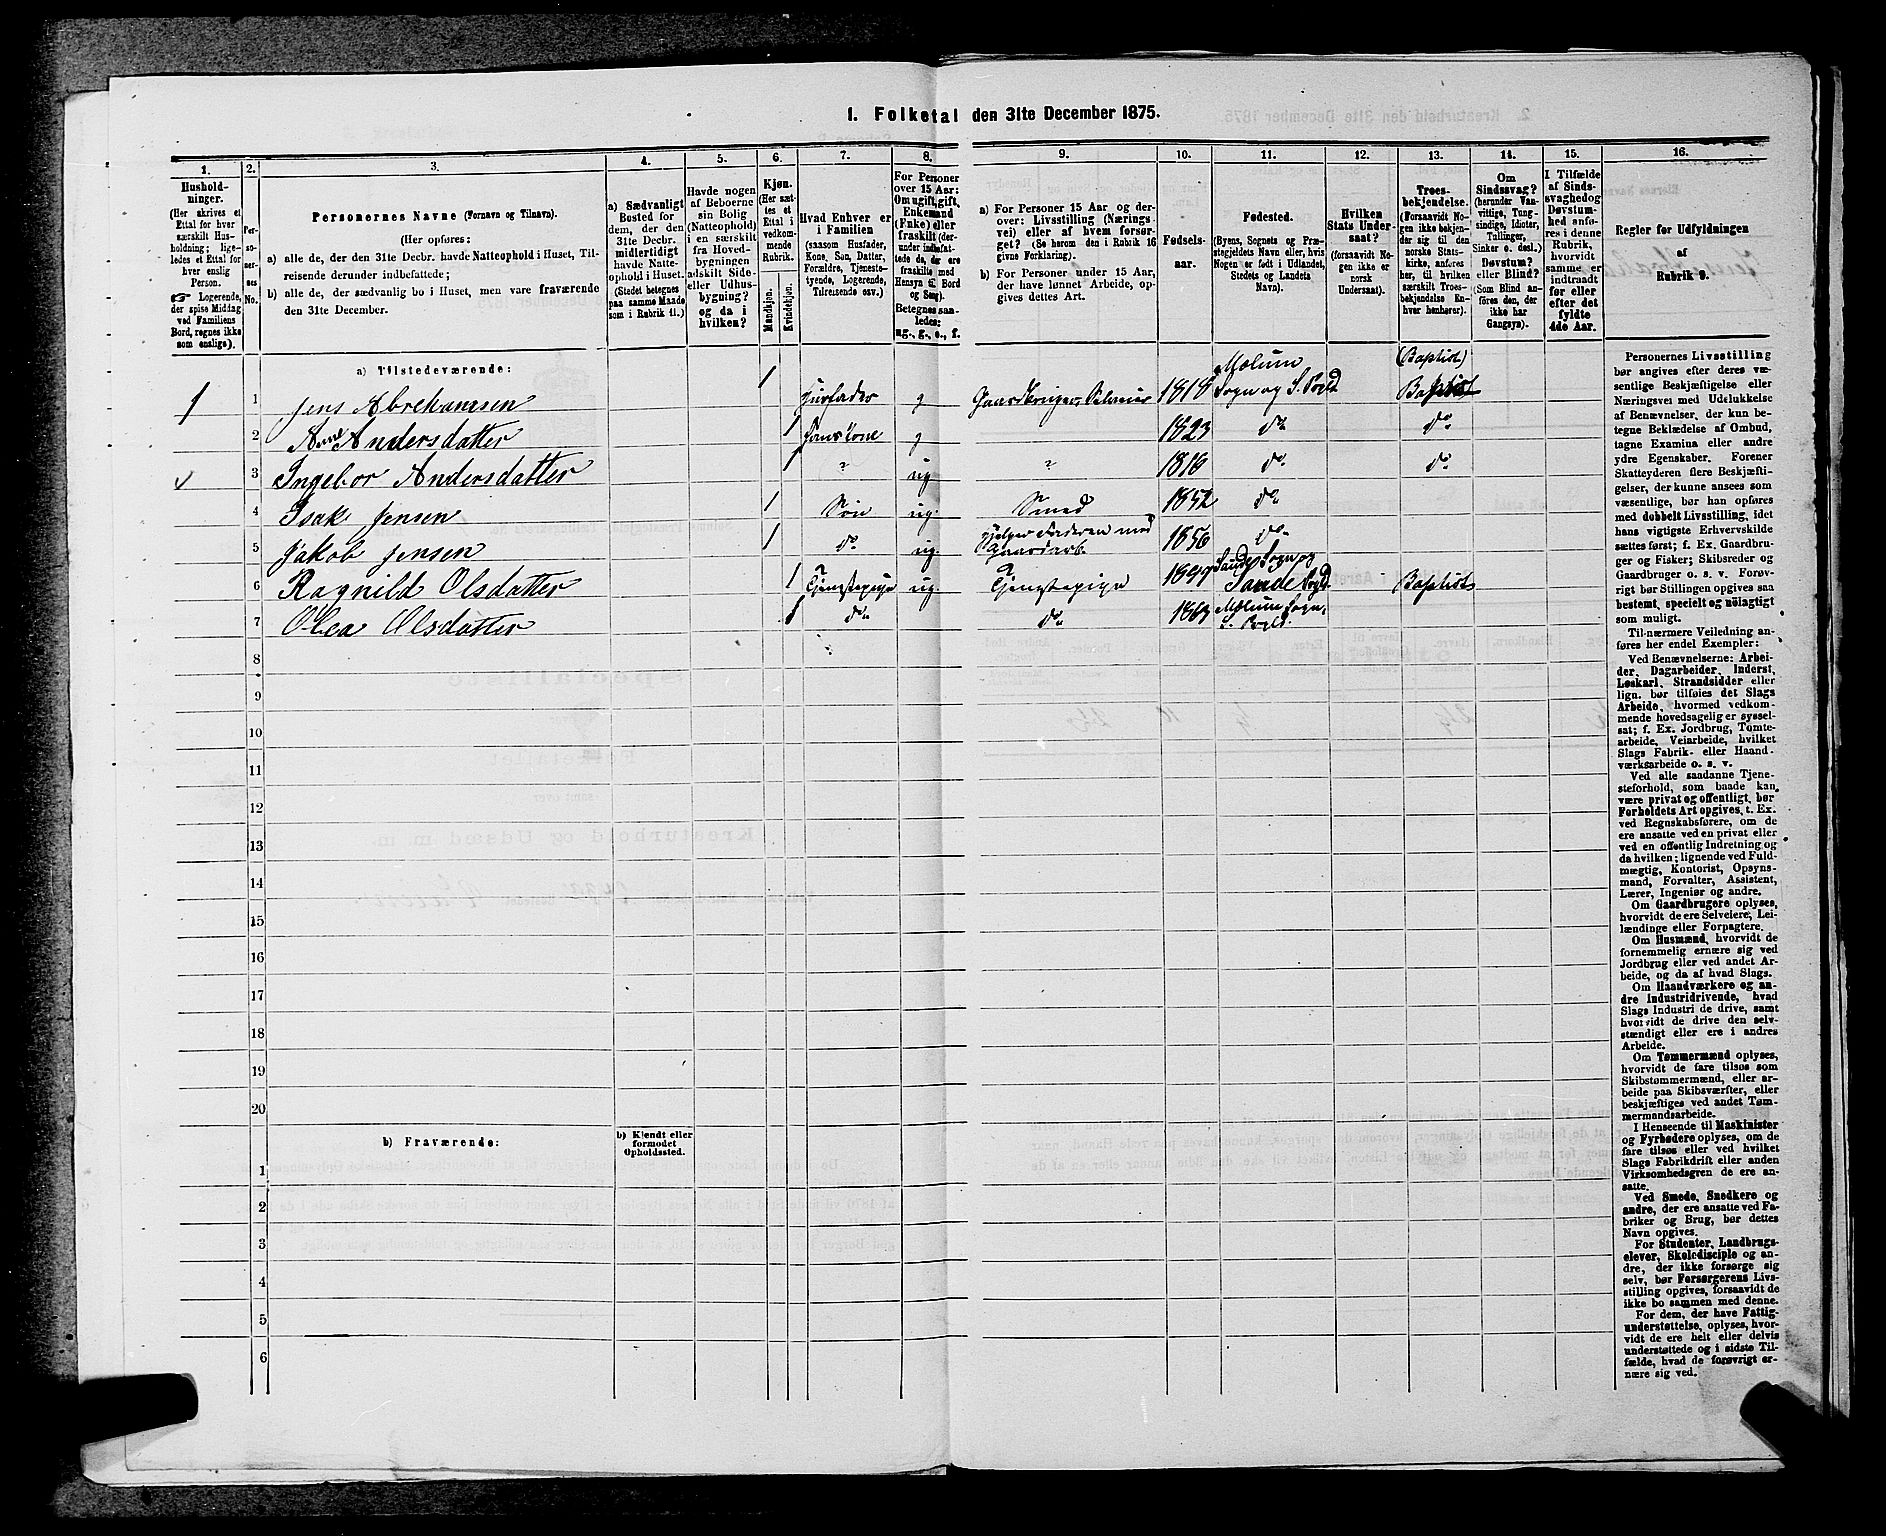 1. Folketal den 31te December 1875.
1. 2. 3. 4. 5. 6. 7. 8. 9. 10. 11. 12. 13. 14. 15. 16.
Hushold-
ninger.
(Her skrives et
Ettal for hver
særskilt Hus-
holdning; lige-
ledes et Ettal for
hver enslig
Person.
☞ Logerende,
der spise Middag
ved Familiens
Bord, regnes ikke
som enslige).
Per-
so-
ner-
nes
No.
Personernes Navne (Fornavn og Tilnavn).
(Her opføres:
a) alle de, der den 31te Decbr. havde Natteophold i Huset, Til-
reisende derunder indbefattede;
b) alle de, der sædvanlig bo i Huset, men vare fraværende
den 31te December.
a) Sædvanligt
Bosted for
dem, der den
31te Decbr.
midlertidigt
havde Natte-
ophold i Huset.
(Stedet betegnes
paa samme Maade
som i Rubrik 11.)
Havde nogen
af Beboerne
sin Bolig
(Natteophold)
i en særskilt
fra Hoved-
bygningen
adskilt Side-
eller Udhus-
bygning?
og da i
hvilken?
Kjøn.
(Her sæt-
tes et
Ettal i
vedkom-
mende
Rubrik.
Mandkjøn.
Kvindekjøn.
Hvad Enhver er
i Familien
(saasom Husfader,
Kone, Søn, Datter,
Forældre, Tjeneste-
tyende, Logerende,
Tilreisende osv.)
For Personer
over 15 Aar:
Om ugift, gift,
Enkemand
(Enke) eller
fraskilt (der-
under indbefat-
tede de, der ere
fraskilte med
Hensyn til Bord
og Seng).
Betegnes saa-
ledes:
ug., g., e., f.
a) For Personer 15 Aar og der-
over: Livsstilling (Nærings-
vei) eller af hvem forsør-
get? (Se herom den i Rubrik 16
givne Forklaring).
b) For Personer under 15 Aar,
der have lønnet Arbeide, op-
gives dettes Art.
Fødsels-
aar.
Fødested.
(Byens, Sognets og Præ-
stegjeldets Navn eller, hvis
Nogen er født i Udlandet,
Stedets og Landets
Navn).
Hvilken
Stats Under-
saat?
(forsaavidt No-
gen ikke er
norsk
Undersaat).
Troes-
bekjendelse.
(Forsaavidt No-
gen ikke bekjen-
der sig til den
norske Stats-
kirke, anføres
her, til hvilken
særskilt Troes-
bekjendelse En-
hver henhører).
Om
Sindssvag?
(herunder Van-
vittige, Tung-
sindige, Idioter,
Tullinger,
Sinker o. desl.)
Døvstum?
eller Blind?
(Som Blind an-
føres den, der
ikke har
Gangsyn).
I Tilfælde
af Sinds-
svaghed og
Døvstum-
hed anfø-
res i denne
Rubrik,
hvorvidt
samme er
indtraadt
før eller
efter det
fyldte
4de Aar.
Regler for Udfyldningen
af
Rubrik 9.
a) Tilstedeværende:
1 1 Jens Abrehamsen 1 Husfader g Gaardbruger, Selveier 1818 Mælum Sogn og S. Pgld (Baptist) Baptist
2 Anne Andersdatter 1 Hans Kone g 1823 do do
3 Ingebor Andersdatter 1 " ug " 1816 do do
4 Isak Jensen 1 Søn ug. Smed 1852 do
5 Jakob Jensen 1 do ug. Hjelper Faderen med Gaardarb. 1856 do
6 Ragnild Olsdatter 1 Tjenestepige ug. Tjenestepige Sande Sogn og Sande Pgld. Baptist
7 Olea Olsdatter 1 do do 1863 Mælum Sogn, S. Pgld.
8
9
10
11
12
13
14
15
16
17
18
19
20
b) Fraværende:
b) Kjendt eller
formodet
Opholdssted.
1
2
3
4
5
6
Personernes Livsstilling
bør angives efter deres væ-
sentlige Beskjæftigelse eller
Næringsvei med Udelukkelse
af Benævnelser, der kun be-
tegne Beklædelse af Ombud,
tagne Examina eller andre
ydre Egenskaber. Forener
Skatteyderen flere Beskjæfti-
gelser, der kunne ansees som
væsentlige, bør han opføres
med dobbelt Livsstilling, idet
hans vigtigste Erhvervskilde
sættes først; f. Ex. Gaardbru-
ger og Fisker; Skibsreder og
Gaardbruger o. s. v. Forøv-
rigt bør Stillingen opgives saa
bestemt, specielt og nøiagtigt
som muligt.
Til nærmere Veiledning an-
føres her endel Exempler:
Ved Benævnelserne: Arbei-
der, Dagarbeider, Inderst,
Løskarl, Strandsidder eller
lign. bør tilføies det Slags
Arbeide, hvormed vedkom-
mende hovedsagelig er syssel-
sat; f. Ex. Jordbrug, Tomte-
arbeide, Veiarbeide, hvilket
Slags Fabrik- eller Haand-
værksarbeide o. s. v.
Ved alle saadanne Tjene-
steforhold, som baade kan
være privat og offentligt, bør
Forholdets Art opgives, t. Ex.
ved Regnskabsførere, om de
ere ansatte ved en privat eller
ved en offentlig Indretning og
da hvilken; lignende ved Fuld-
mægtig, Kontorist, Opsyns-
mand, Forvalter, Assistent,
Lærer, Ingeniør og andre.
Om Gaardbrugere oplyses,
hvorvidt de ere Selveiere, Lei-
lændinge eller Forpagtere.
Om Husmænd, hvorvidt de
fornemmelig ernære sig ved
Jordbrug eller ved andet Ar-
beide, og da af hvad Slags.
Om Haandværkere og an-
dre Industridrivende, hvad
Slags Industri de drive, samt
hvorvidt de drive den selv-
stændigt eller ere i andres
Arbeide.
Om Tømmermænd oplyses,
hvorvidt de fare tilsøs som
Skibstømmermænd, eller ar-
beide paa Skibsværfter, eller
beskjæftiges ved andet Tøm-
mermandsarbeide.
I Henseende til Maskinister
og Fyrbødere oplyses, om de
fare tilsøs eller ved hvilket
Slags Fabrikdrift eller anden
Virksomhedsgren de ere an-
satte.
Ved Smede, Snedkere og
andre, der ere ansatte ved Fa-
briker og Brug, bør dettes
Navn opgives.
For Studenter, Landbrugs-
elever, Skoledisciple og an-
dre, der ikke forsørge sig
selv, bør Forsørgerens Livs-
stilling opgives, forsaavidt de
ikke bo sammen med denne.
For dem, der have Fattig-
understøttelse, oplyses, hvor-
vidt de ere helt eller delvis
understøttede og i sidste Til-
fælde, hvad de forøvrigt er-
nære sig ved.